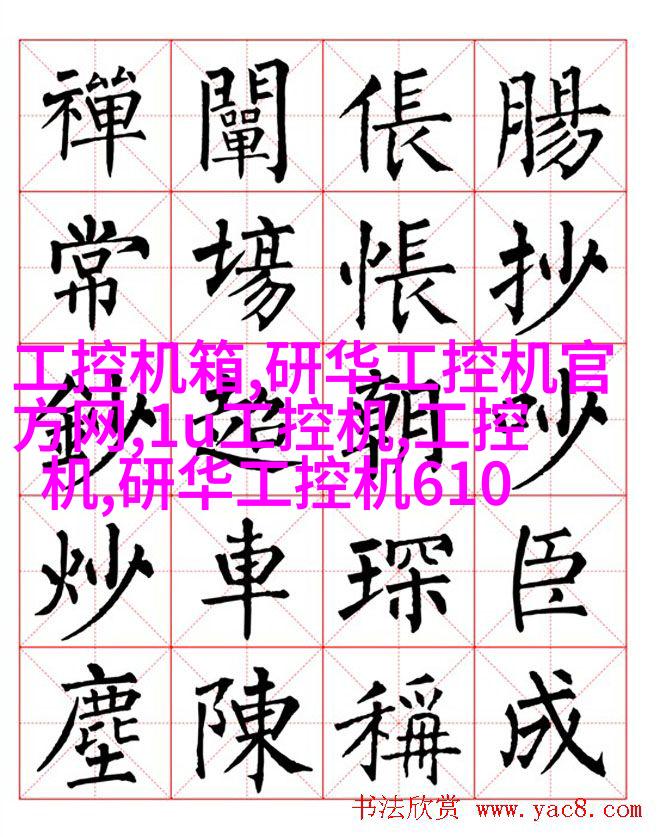 禪 闡 倀 腸
常 場 悵 抄
鈔 超 朝 吵
炒 車 琛 臣
塵 陳 稱 成
工控机箱,研华工控机官
方网,1u工控机,工控
机,研华工控机610
书法欣赏 www.yac8.com